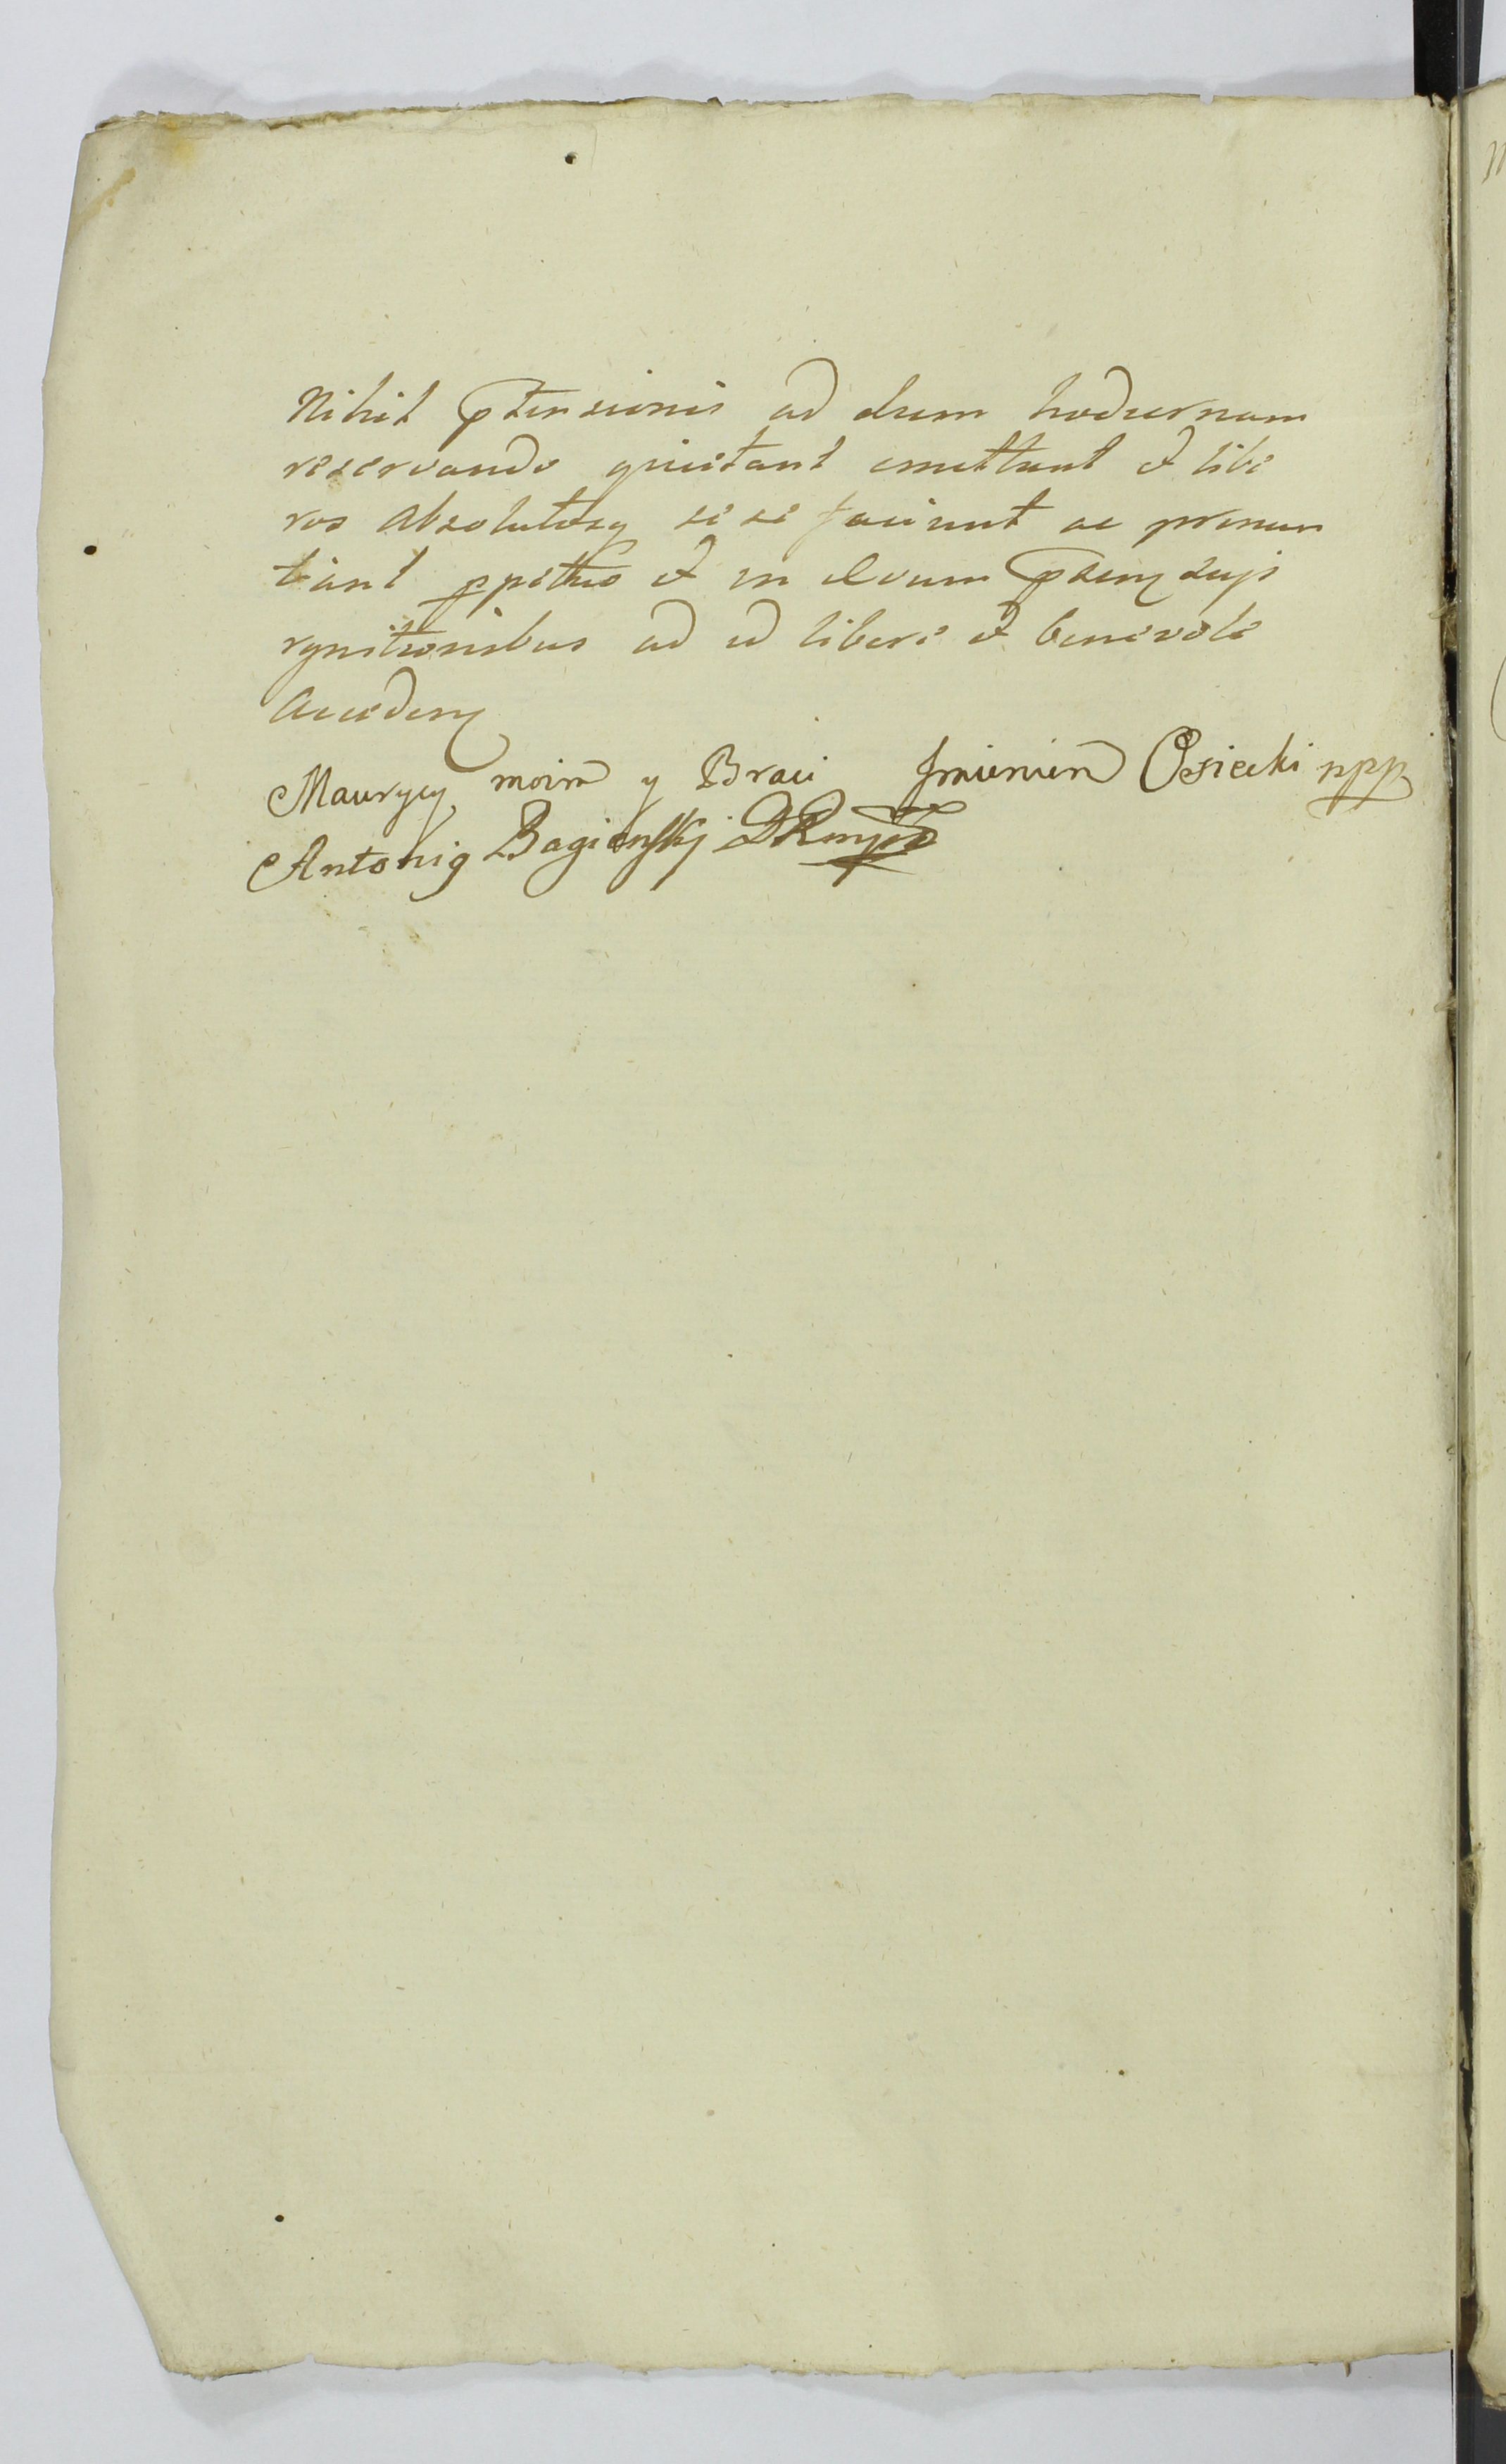 Nihil ptensionis ad diem hodiernam
reservando quietant emittunt et libe
ros Absolutosq sese faciunt ac pronun
tiant ppetuo et in Aevum psentq suis
rgnitionibus ad id libere et benevole
Acceden
Maurycy moim y Braci Jmieniem Osiecki mpp
Antonig Bagienskj